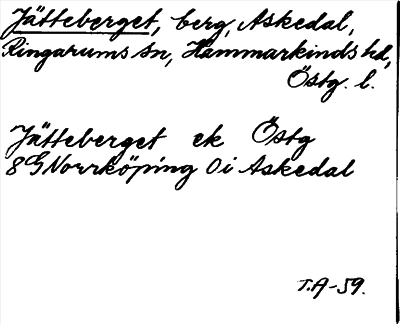 Jätteberget, berg, Askedal,
Ringarums sn, Hammarkinds hd,
Östg. l.
Jätteberget ek Östg
8G Norrköping 0i Askedal
T.A-59.